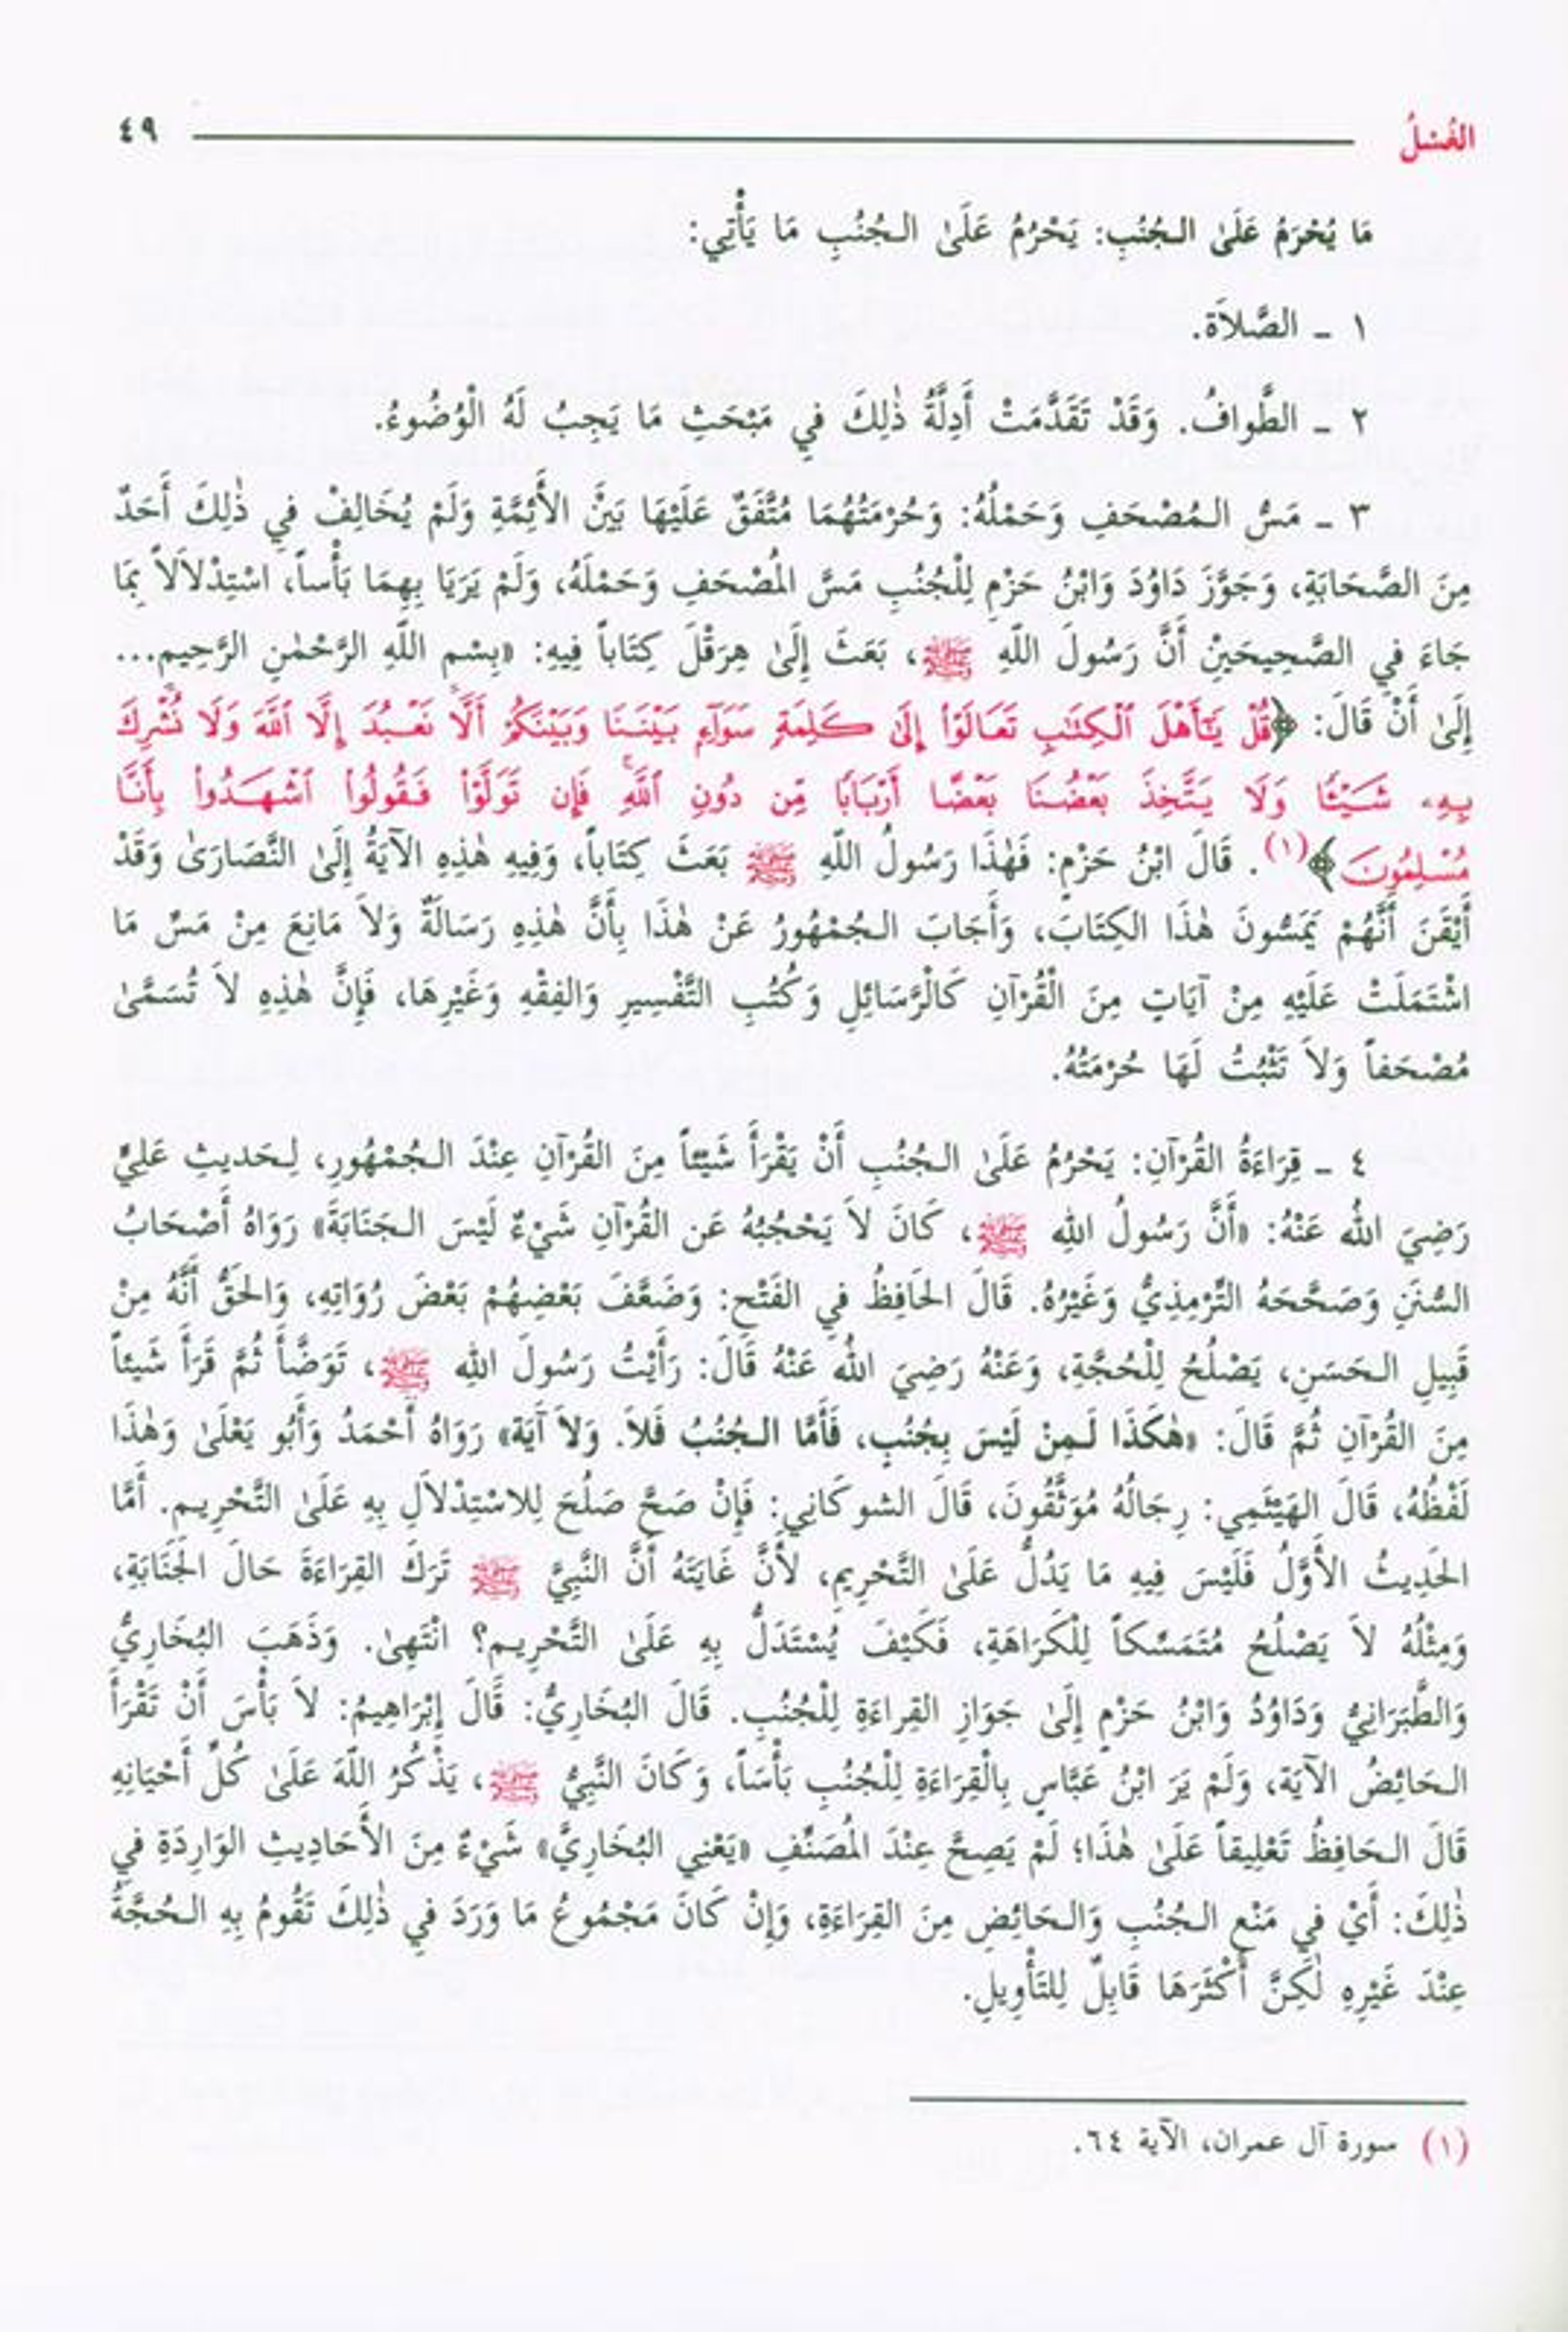 الغُسْلُ ٤٩
مَا يُحْرَمُ عَلَىٰ الـجُنُبِ: يَحْرُمُ عَلَىٰ الـجُنُبِ مَا يَأْتِي:
١ ـ الصَّلاَة.
٢ ـ الطَّوافُ. وَقَدْ تَقَدَّمَتْ أَدِلَّةُ ذٰلِكَ فِي مَبْحَثِ مَا يَجِبُ لَهُ الْوُضُوءُ.
٣ ـ مَسُّ الـمُصْحَفِ وَحَمْلُهُ: وَحُرْمَتُهُمَا مُتَّفَقٌ عَلَيْهَا بَيْنَ الأَئِمَّةِ وَلَمْ يُخَالِفْ فِي ذٰلِكَ أَحَدٌ
مِنَ الصَّحَابَةِ، وَجَوَّزَ دَاوُدَ وَابْنُ حَزْمٍ لِلْجُنُبِ مَسَّ المُصْحَفِ وَحَمْلَهُ، وَلَمْ يَرَيَا بِهِمَا بَأْساً، اسْتِدْلاَلاً بِمَا
جَاءَ فِي الصَّحِيحَيْنِ أَنَّ رَسُولَ اللَّهِ ﷺ، بَعَثَ إِلَىٰ هِرَقْلَ كِتَاباً فِيهِ: «بِسْمِ اللَّهِ الرَّحْمٰنِ الرَّحِيمِ...
إِلَىٰ أَنْ قَالَ: ﴿قُلْ يَٰٓأَهْلَ ٱلْكِتَٰبِ تَعَالَوْا۟ إِلَىٰ كَلِمَةٍ سَوَآءٍۭ بَيْنَنَا وَبَيْنَكُمْ أَلَّا نَعْبُدَ إِلَّا ٱللَّهَ وَلَا نُشْرِكَ
بِهِۦ شَيْـًٔا وَلَا يَتَّخِذَ بَعْضُنَا بَعْضًا أَرْبَابًا مِّن دُونِ ٱللَّهِ ۚ فَإِن تَوَلَّوْا۟ فَقُولُوا۟ ٱشْهَدُوا۟ بِأَنَّا
مُسْلِمُونَ﴾(١). قَالَ ابْنُ حَزْمٍ: فَهٰذَا رَسُولُ اللَّهِ ﷺ بَعَثَ كِتَاباً، وَفِيهِ هٰذِهِ الآيَةُ إِلَىٰ النَّصَارَىٰ وَقَدْ
أَيْقَنَ أَنَّهُمْ يَمَسُّونَ هٰذَا الكِتَابَ، وَأَجَابَ الـجُمْهُورُ عَنْ هٰذَا بِأَنَّ هٰذِهِ رَسَالَةٌ وَلاَ مَانِعَ مِنْ مَسِّ مَا
اشْتَمَلَتْ عَلَيْهِ مِنْ آيَاتٍ مِنَ الْقُرْآنِ كَالْرَّسَائِلِ وَكُتُبِ التَّفْسِيرِ وَالفِقْهِ وَغَيْرِهَا، فَإِنَّ هٰذِهِ لاَ تُسَمَّىٰ
مُصْحَفاً وَلاَ تَثْبُتُ لَهَا حُرْمَتُهُ.
٤ ـ قِرَاءَةُ القُرْآنِ: يَحْرُمُ عَلَىٰ الـجُنُبِ أَنْ يَقْرَأَ شَيْئاً مِنَ القُرْآنِ عِنْدَ الـجُمْهُورِ، لِـحَديثِ عَلِيٍّ
رَضِيَ اللهُ عَنْهُ: «أَنَّ رَسُولُ اللهِ ﷺ، كَانَ لاَ يَحْجُبُهُ عَن القُرْآنِ شَيْءٌ لَيْسَ الـجَنَابَةَ» رَوَاهُ أَصْحَابُ
السُّنَنِ وَصَحَّحَهُ التِّرْمِذِيُّ وَغَيْرُهُ. قَالَ الحَافِظُ فِي الفَتْحِ: وَضَعَّفَ بَعْضِهُمْ بَعْضَ رُوَاتِهِ، وَالحَقُّ أَنَّهُ مِنْ
قَبِيلِ الـحَسَنِ، يَصْلُحُ لِلْحُجَّةِ، وَعَنْهُ رَضِيَ اللهُ عَنْهُ قَالَ: رَأَيْتُ رَسُولَ اللهِ ﷺ، تَوَضَّأَ ثُمَّ قَرَأَ شَيئاً
مِنَ القُرْآنِ ثُمَّ قَالَ: «هٰكَذَا لَـمِنْ لَيْسَ بِجُنُبٍ، فَأَمَّا الـجُنُبُ فَلاَ. وَلاَ آيَة» رَوَاهُ أَحْمَدُ وَأَبُو يَعْلَىٰ وَهٰذَا
لَفْظُهُ، قَالَ الهَيْثَمِي: رِجَالُهُ مُوَثَّقُونَ، قَالَ الشوكَانِي: فَإِنْ صَحَّ صَلُحَ لِلاسْتِدْلاَلِ بِهِ عَلَىٰ التَّحْرِيـمِ. أَمَّا
الحَدِيثُ الأَوَّلُ فَلَيْسَ فِيهِ مَا يَدُلُّ عَلَىٰ التَّحْرِيمِ، لأَنَّ غَايَتَهُ أَنَّ النَّبِيَّ ﷺ تَرَكَ القِرَاءَةَ حَالَ الجَنَابَةِ،
وَمِثْلُهُ لاَ يَصْلُحُ مُتَمَسَّكاً لِلْكَرَاهَةِ، فَكَيْفَ يُسْتَدَلُّ بِهِ عَلَىٰ التَّحْرِيـمِ؟ انْتَهِىٰ. وَذَهَبَ البُخَارِيُّ
وَالطَّبَرَانِيُّ وَدَاوُدُ وَابْنُ حَزْمٍ إِلَىٰ جَوَازِ القِراءَةِ لِلْجُنُبِ. قَالَ البُخَارِيُّ: قَالَ إِبْرَاهِيمُ: لاَ بَأْسَ أَنْ تَقْرَأَ
الـحَائِضُ الآيَة، وَلَمْ يَرَ ابْنُ عَبَّاسٍ بِالْقِرَاءَةِ لِلْجُنُبِ بَأْسَاً، وَكَانَ النَّبِيُّ ﷺ، يَذْكُرُ اللَّهَ عَلَىٰ كُلِّ أَحْيَانِهِ
قَالَ الـحَافِظُ تَعْلِيقاً عَلَىٰ هٰذَا؛ لَمْ يَصِحَّ عِنْدَ المُصَنِّفِ «يَعْنِي البُخَارِيَّ» شَيْءٌ مِنَ الأَحَادِيثِ الوَارِدَةِ فِي
ذٰلِكَ: أَيْ فِي مَنْعِ الـجُنُبِ وَالـحَائِضِ مِنَ القِرَاءَةِ، وَإِنْ كَانَ مَجْمُوعُ مَا وَرَدَ فِي ذٰلِكَ تَقُومُ بِهِ الـحُجَّةُ
عِنْدَ غَيْرِهِ لٰكِنَّ أَكْثَرَهَا قَابِلٌ لِلتَأْوِيلِ.
(١) سورة آل عمران، الآية ٦٤.